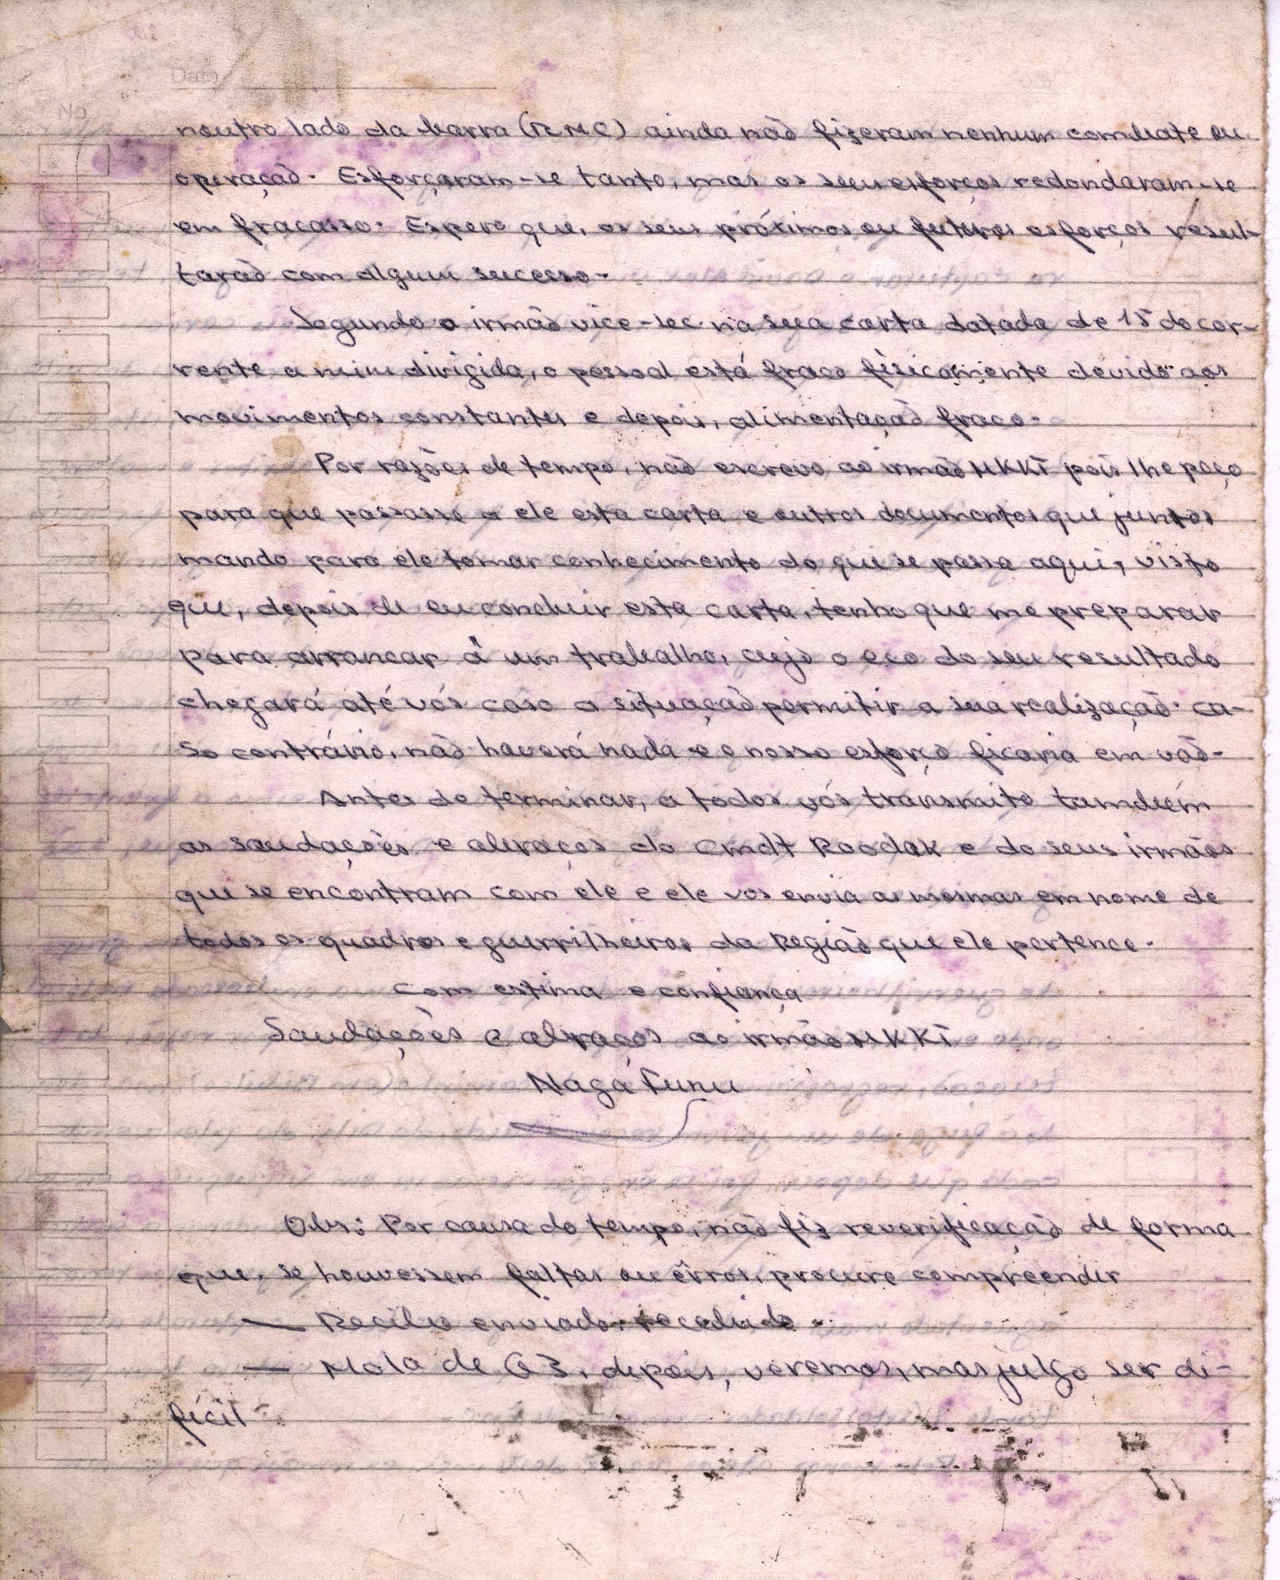 Data
No
noutro lado da barra (RMC) ainda não fizeram nenhum combate ou
operação. Esforçaram-se tanto, mas os seus esforços redondaram-se
em fracasso. Espero que, os seus próximos ou futuros esforços resul-
tarão com algum sucesso.
Segundo o irmão vice-sec na sua carta datada de 15 do cor-
rente a mim dirigida, o pessoal está fraco fisicamente devido aos
movimentos constantes e depois, alimentação fraco.
Por razões de tempo, não escrevo ao irmão NKKI pois lhe peço
para que passasse a ele esta carta e outros documentos que juntos
mando para ele tomar conhecimento do que se passa aqui, visto
que, depois de eu concluir esta carta, tenho que me preparar
para arrancar à um trabalho, cujo o eco do seu resultado
chegará até vós caso a situação permitir a sua realização. Ca-
so contrário, não haverá nada e o nosso esforço ficaria em vão.
Antes de terminar, a todos vós transmito também
as saudações e abraços do Cmdt Roodak e do seus irmãos
que se encontram com ele e ele vos envia as mesmas em nome de
todos os quadros e guerrilheiros da Região que ele pertence.
Com estima e confiança
Saudações e abraços ao irmão NKKI
Nagá Funu
Obs: Por causa do tempo, não fiz reverificação de forma
que, se houvessem faltas ou êrros, procure compreender
— Recibo enviado recebido.
— Mola de G3, depois, veremos, mas julgo ser di-
fícil